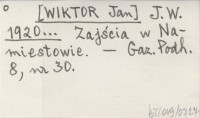 [WIKTOR Jan] J. W.
1920... Zajścia w Na-
miestowie. — Gaz. Podh.
8, nr 30.